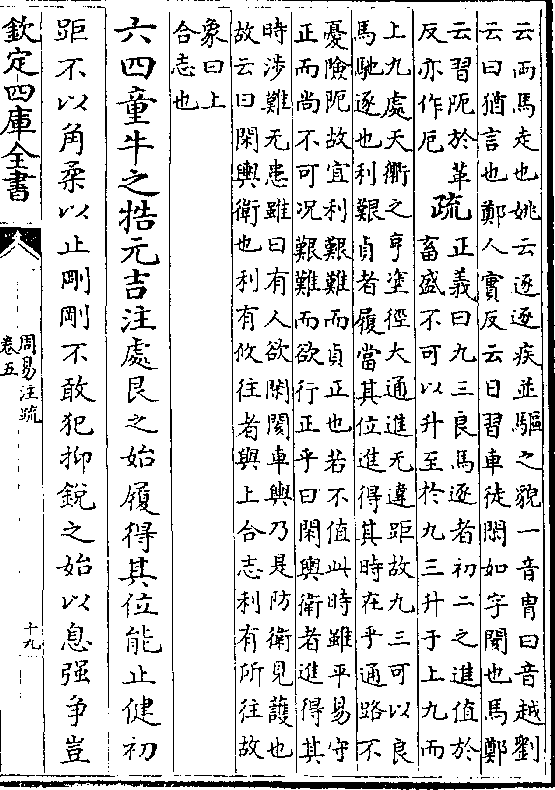 云兩馬走也姚云逐逐疾並驅之貌一音胄曰音越劉
云曰猶言也鄭人實反云日習車徒閑如字閡也馬鄭
云習阨於革
反亦作厄
疏
正義曰九三良馬逐者初二之進值於
畜盛不可以升至於九三升于上九而
上九處天衢之亨塗徑大通進无違距故九三可以良
馬馳逐也利艱貞者履當其位進得其時在乎通路不
憂險阨故宜利艱難而貞正也若不值此時雖平易守
正而尚不可况艱難而欲行正乎曰閑輿衛者進得其
時涉難无患雖曰有人欲閑閡車輿乃是防衛見護也
故云曰閑輿衛也利有攸往者與上合志利有所往故
象曰上
合志也
六四童牛之牿元吉注處艮之始履得其位能止健初
距不以角柔以止剛剛不敢犯抑銳之始以息强争豈
欽定四庫全書
周易注疏
卷五
十九